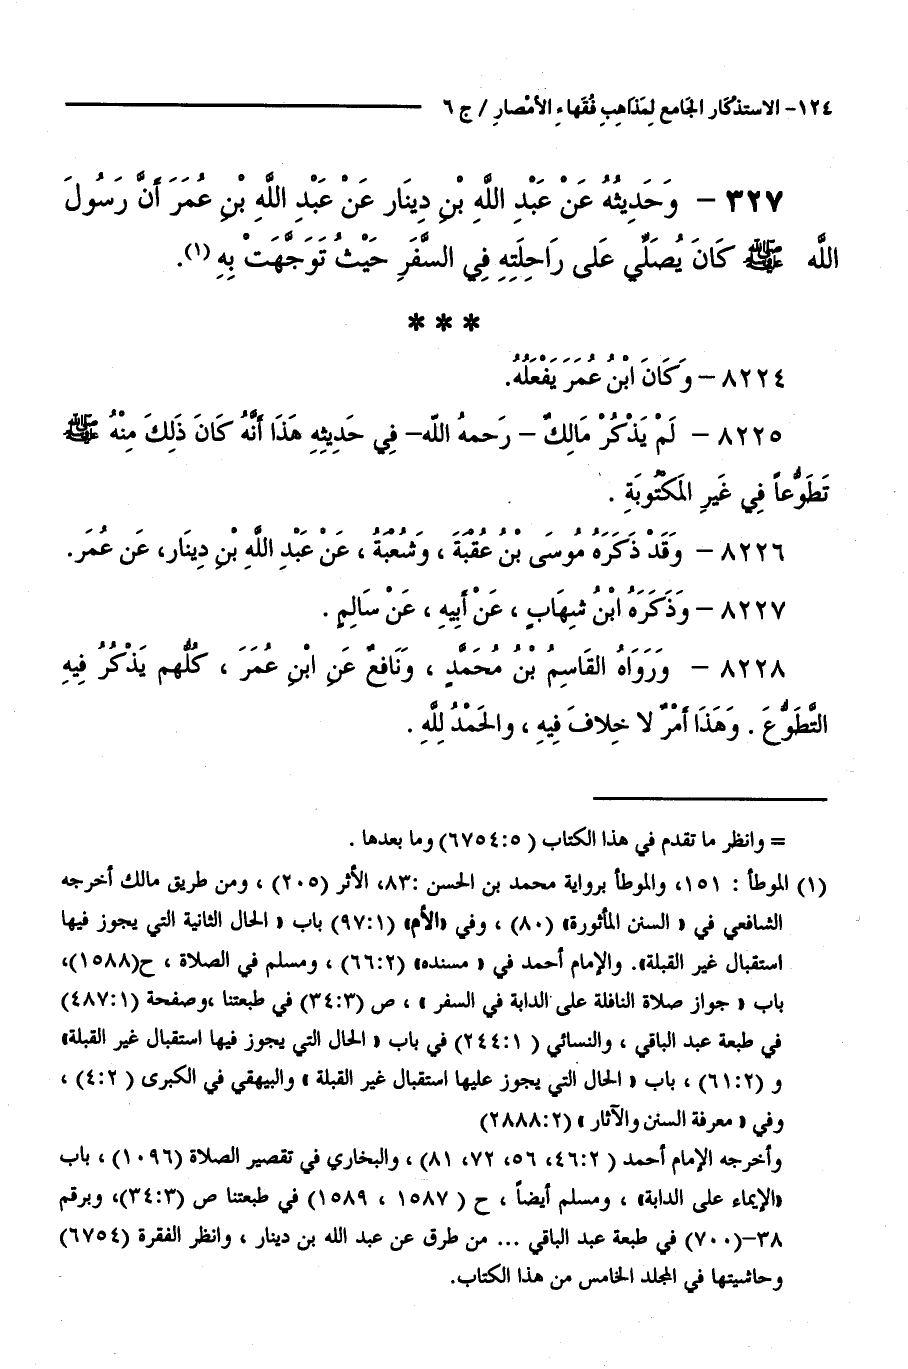 ١٢٤- الاستذكار الجامع لمَذاهِبِ فُقَهاءِ الأمْصارِ / ج ٦
٣٢٧ - وَحَدِيثُهُ عَنْ عَبْدِ اللَّهِ بْنِ دِينَار عَنْ عَبْدِ اللَّهِ بْنِ عُمَرَ أَنَّ رَسُولَ
اللَّه ﷺ كَانَ يُصَلِّي عَلى رَاحِلَتِهِ فِي السَّفَرِ حَيْثُ تَوَجَّهَتْ بِهِ (١).
* * *
٨٢٢٤ - وَكَانَ ابْنُ عُمَرَ يَفْعَلُهُ.
٨٢٢٥ - لَمْ يَذْكُرْ مَالِكٌ - رَحمهُ اللّه- فِي حَدِيثِهِ هَذَا أَنَّهُ كَانَ ذَلِكَ مِنْهُ ﷺ
تَطَوُّعاً فِي غَيرِ المَكْتُوبَةِ .
٨٢٢٦ - وَقَدْ ذَكَرَهُ مُوسَى بْنُ عُقْبَةَ ، وَشُعْبَةُ ، عَنْ عَبْدِ اللَّهِ بْنِ دِينَار، عَن عُمَر.
٨٢٢٧ - وَذَكَرَهُ ابْنُ شِهَابٍ ، عَنْ أَبِيهِ ، عَنْ سَالِمٍ .
٨٢٢٨ - وَرَوَاهُ القَاسِمُ بْنُ مُحَمَّدٍ ، وَنَافِعٌ عَنِ ابْنِ عُمَرَ ، كُلُّهم يَذْكُرُ فِيهِ
التَّطَوُّعَ . وَهَذَا أَمْرٌ لا خِلافَ فِيهِ ، والحَمْدُ لِلَّهِ .
= وانظر ما تقدم في هذا الكتاب ( ٥:٦٧٥٤) وما بعدها .
(١) الموطأ : ١٥١، والموطأ برواية محمد بن الحسن :٨٣، الأثر (٢٠٥) ، ومن طريق مالك أخرجه
الشافعي في « السنن المأثورة» (٨٠) ، وفي «الأم» (٩٧:١) باب « الحال الثانية التي يجوز فيها
استقبال غير القبلة». والإمام أحمد في « مسنده» (٦٦:٢) ، ومسلم في الصلاة ، ح(١٥٨٨)،
باب « جواز صلاة النافلة على الدابة في السفر » ، ص (٣٤:٣) في طبعتنا ،وصفحة (٤٨٧:١)
في طبعة عبد الباقي ، والنسائي ( ٢٤٤:١) في باب « الحال التي يجوز فيها استقبال غير القبلة»
و (٦١:٢) ، باب « الحال التي يجوز عليها استقبال غير القبلة » والبيهقي في الكبرى ( ٤:٢) ،
وفي « معرفة السنن والآثار » (٢٨٨٨:٢)
وأخرجه الإمام أحمد ( ٤٦:٢، ٥٦، ٧٢، ٨١) ، والبخاري في تقصير الصلاة (١٠٩٦) ، باب
«الإيماء على الدابة» ، ومسلم أيضاً ، ح ( ١٥٨٧ ، ١٥٨٩) في طبعتنا ص (٣٤:٣)، وبرقم
٣٨-(٧٠٠) في طبعة عبد الباقي ... من طرق عن عبد الله بن دينار ، وانظر الفقرة (٦٧٥٤)
وحاشيتها في المجلد الخامس من هذا الكتاب.